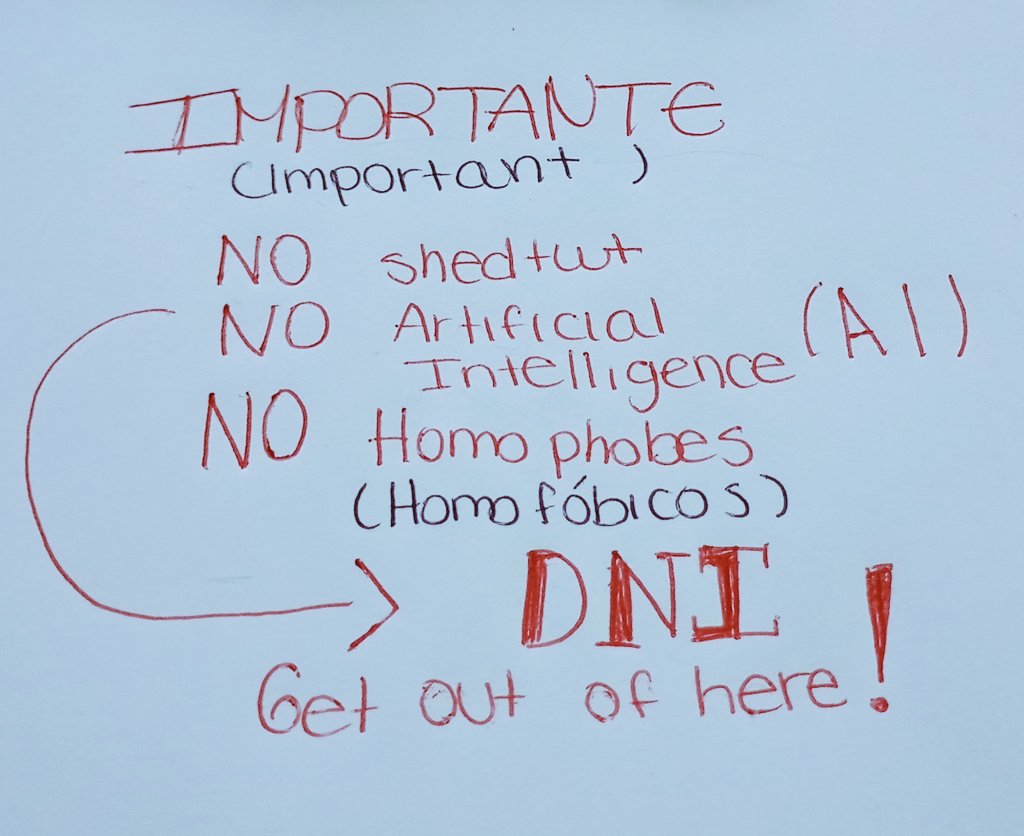 IMPORTANTE
(Important)
NO shedtwt
NO Artificial
Intelligence (AI)
NO Homophobes
(Homofóbicos)
DNI
Get out of here!